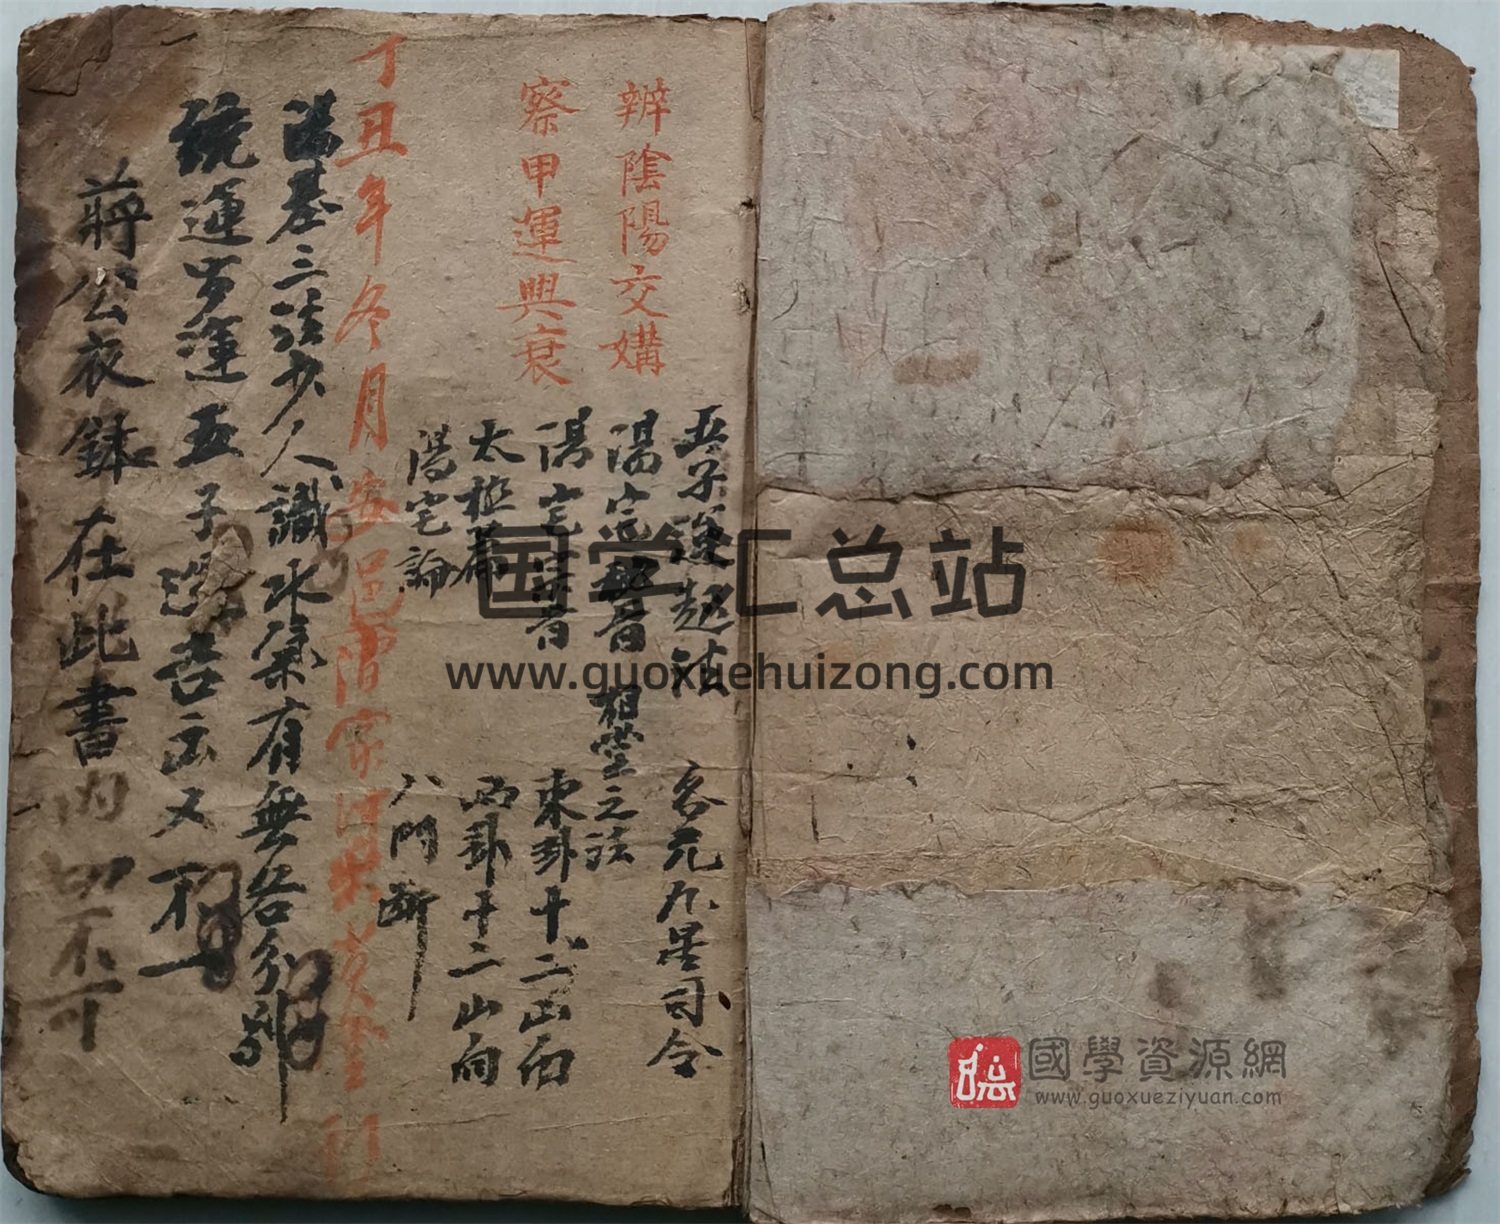 辨陰陽交媾
察甲運興衰
五子運起法
各元九星司令
陽宅秘旨
相堂之法
陽宅
旨
東卦十二山向
太極篇
西卦十二山向
陽宅論
八門斷
丁丑年冬月安邑
陽基三法少人識水氣有無各分別
統運岁運五子運吉凶又不一
蔣公衣鉢在此書内切不可
国学汇总站
www.guoxuehuizong.com
國學資源網
www.guoxueziyuan.com